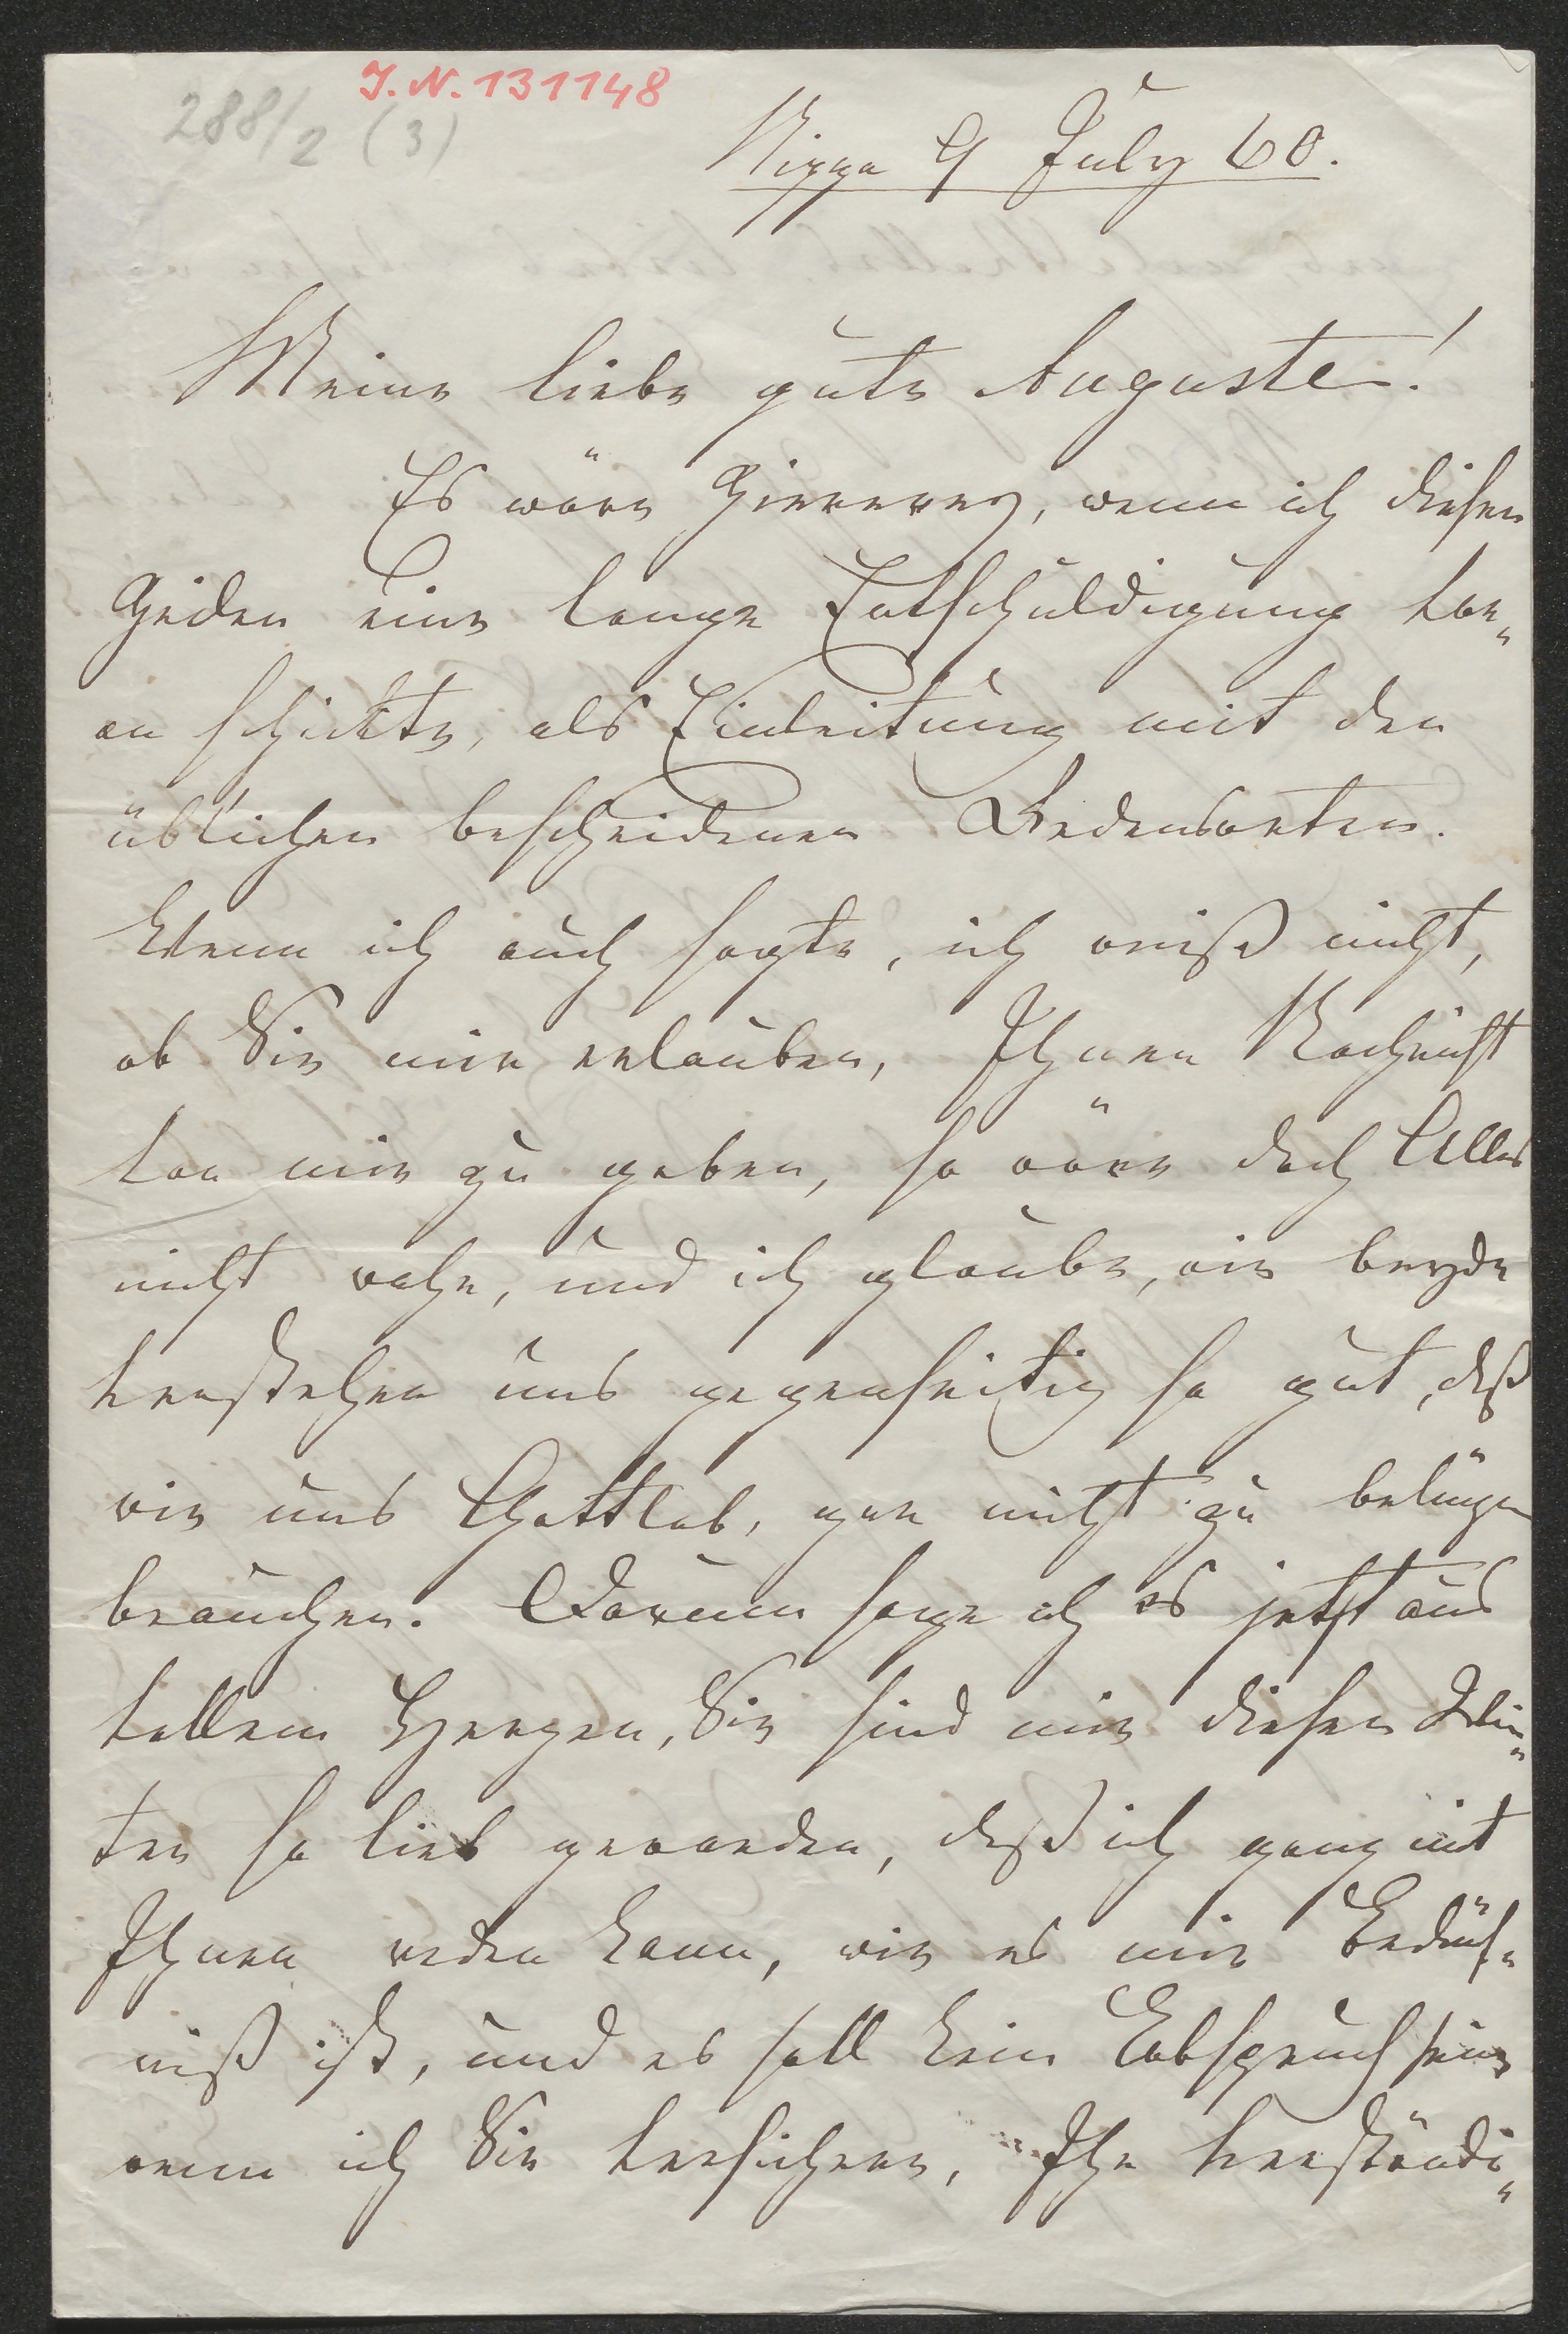 I. N. 131148
288/2 (3)
Nizza 9 July 60.
Meine liebe gute Auguste!
Es wäre Ziererey, wenn ich diesen
Zeilen eine lange Entschuldigung vor„
an schickte, als Einleitung mit den
üblichen bescheidenen Redensarten.
Wenn ich auch sagte, ich weiß nicht,
ob Sie mir erlauben, Ihnen Nachricht
von mir zu geben, so wäre doch Alles
nicht wahr, und ich glaube, wir beyde
verstehen uns gegenseitig so gut, daß
wir uns Gottlob, gar nicht zu belügen
brauchen. Darum sage ich es jetzt aus
vollem Herzen, Sie sind mir diesen Win„
ter so lieb geworden, daß ich ganz mit
Ihnen reden kann, wie es mir Bedürf„
niß ist, und es soll kein Lobspruch sein,
wenn ich Sie versichere, Ihr verständi„